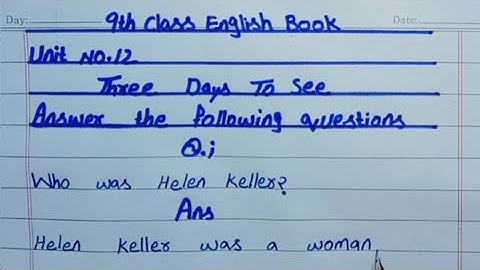 Day: Date:
9th Class English Book
Unit No.12
Three Days To See
Answer the following questions
Q.i
Who was Helen Keller?
Ans
Helen Keller was a woman